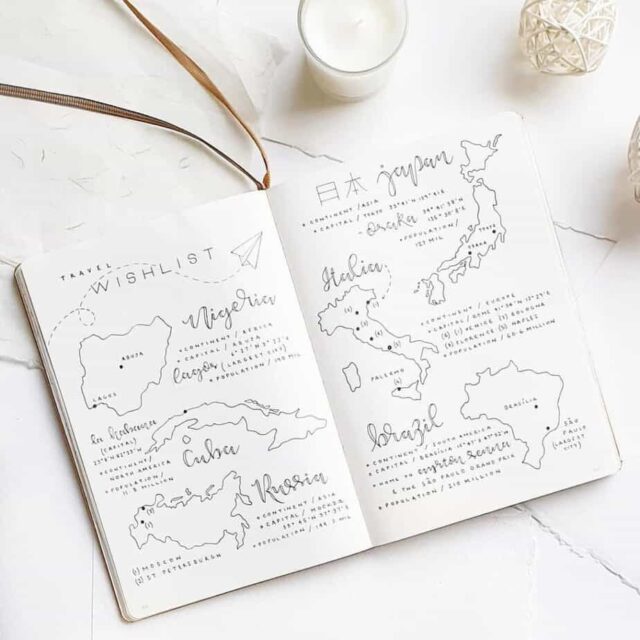 TRAVEL
WISHLIST
Nigeria
• CONTINENT / AFRICA
• CAPITAL / ABUJA
Lagos (LARGEST CITY)
• POPULATION /
ABUJA
LAGOS
La Habana
(CAPITAL)
• CONTINENT /
NORTH AMERICA
• POPULATION /
MILLION
Cuba
Russia
• CONTINENT / ASIA
• CAPITAL / MOSCOW
• POPULATION /
(1)
(2)
(1) MOSCOW
(2) ST PETERSBURGH
日本 Japan
• CONTINENT / ASIA
• CAPITAL / TOKYO
- Osaka
• POPULATION /
127 MIL
OSAKA
Italia
• CONTINENT / EUROPE
• CAPITAL / ROME
VENICE BOLOGNA
FLORENCE NAPLES
• POPULATION / 60.6 MILLION
PALERMO
Brazil
• CONTINENT / SOUTH AMERICA
• CAPITAL / BRASÍLIA
• HOME OF ayrton senna
& THE SÃO PAULO GRAND PRIX
• POPULATION / 210 MILLION
BRASÍLIA
SÃO
PAULO
(LARGEST
CITY)